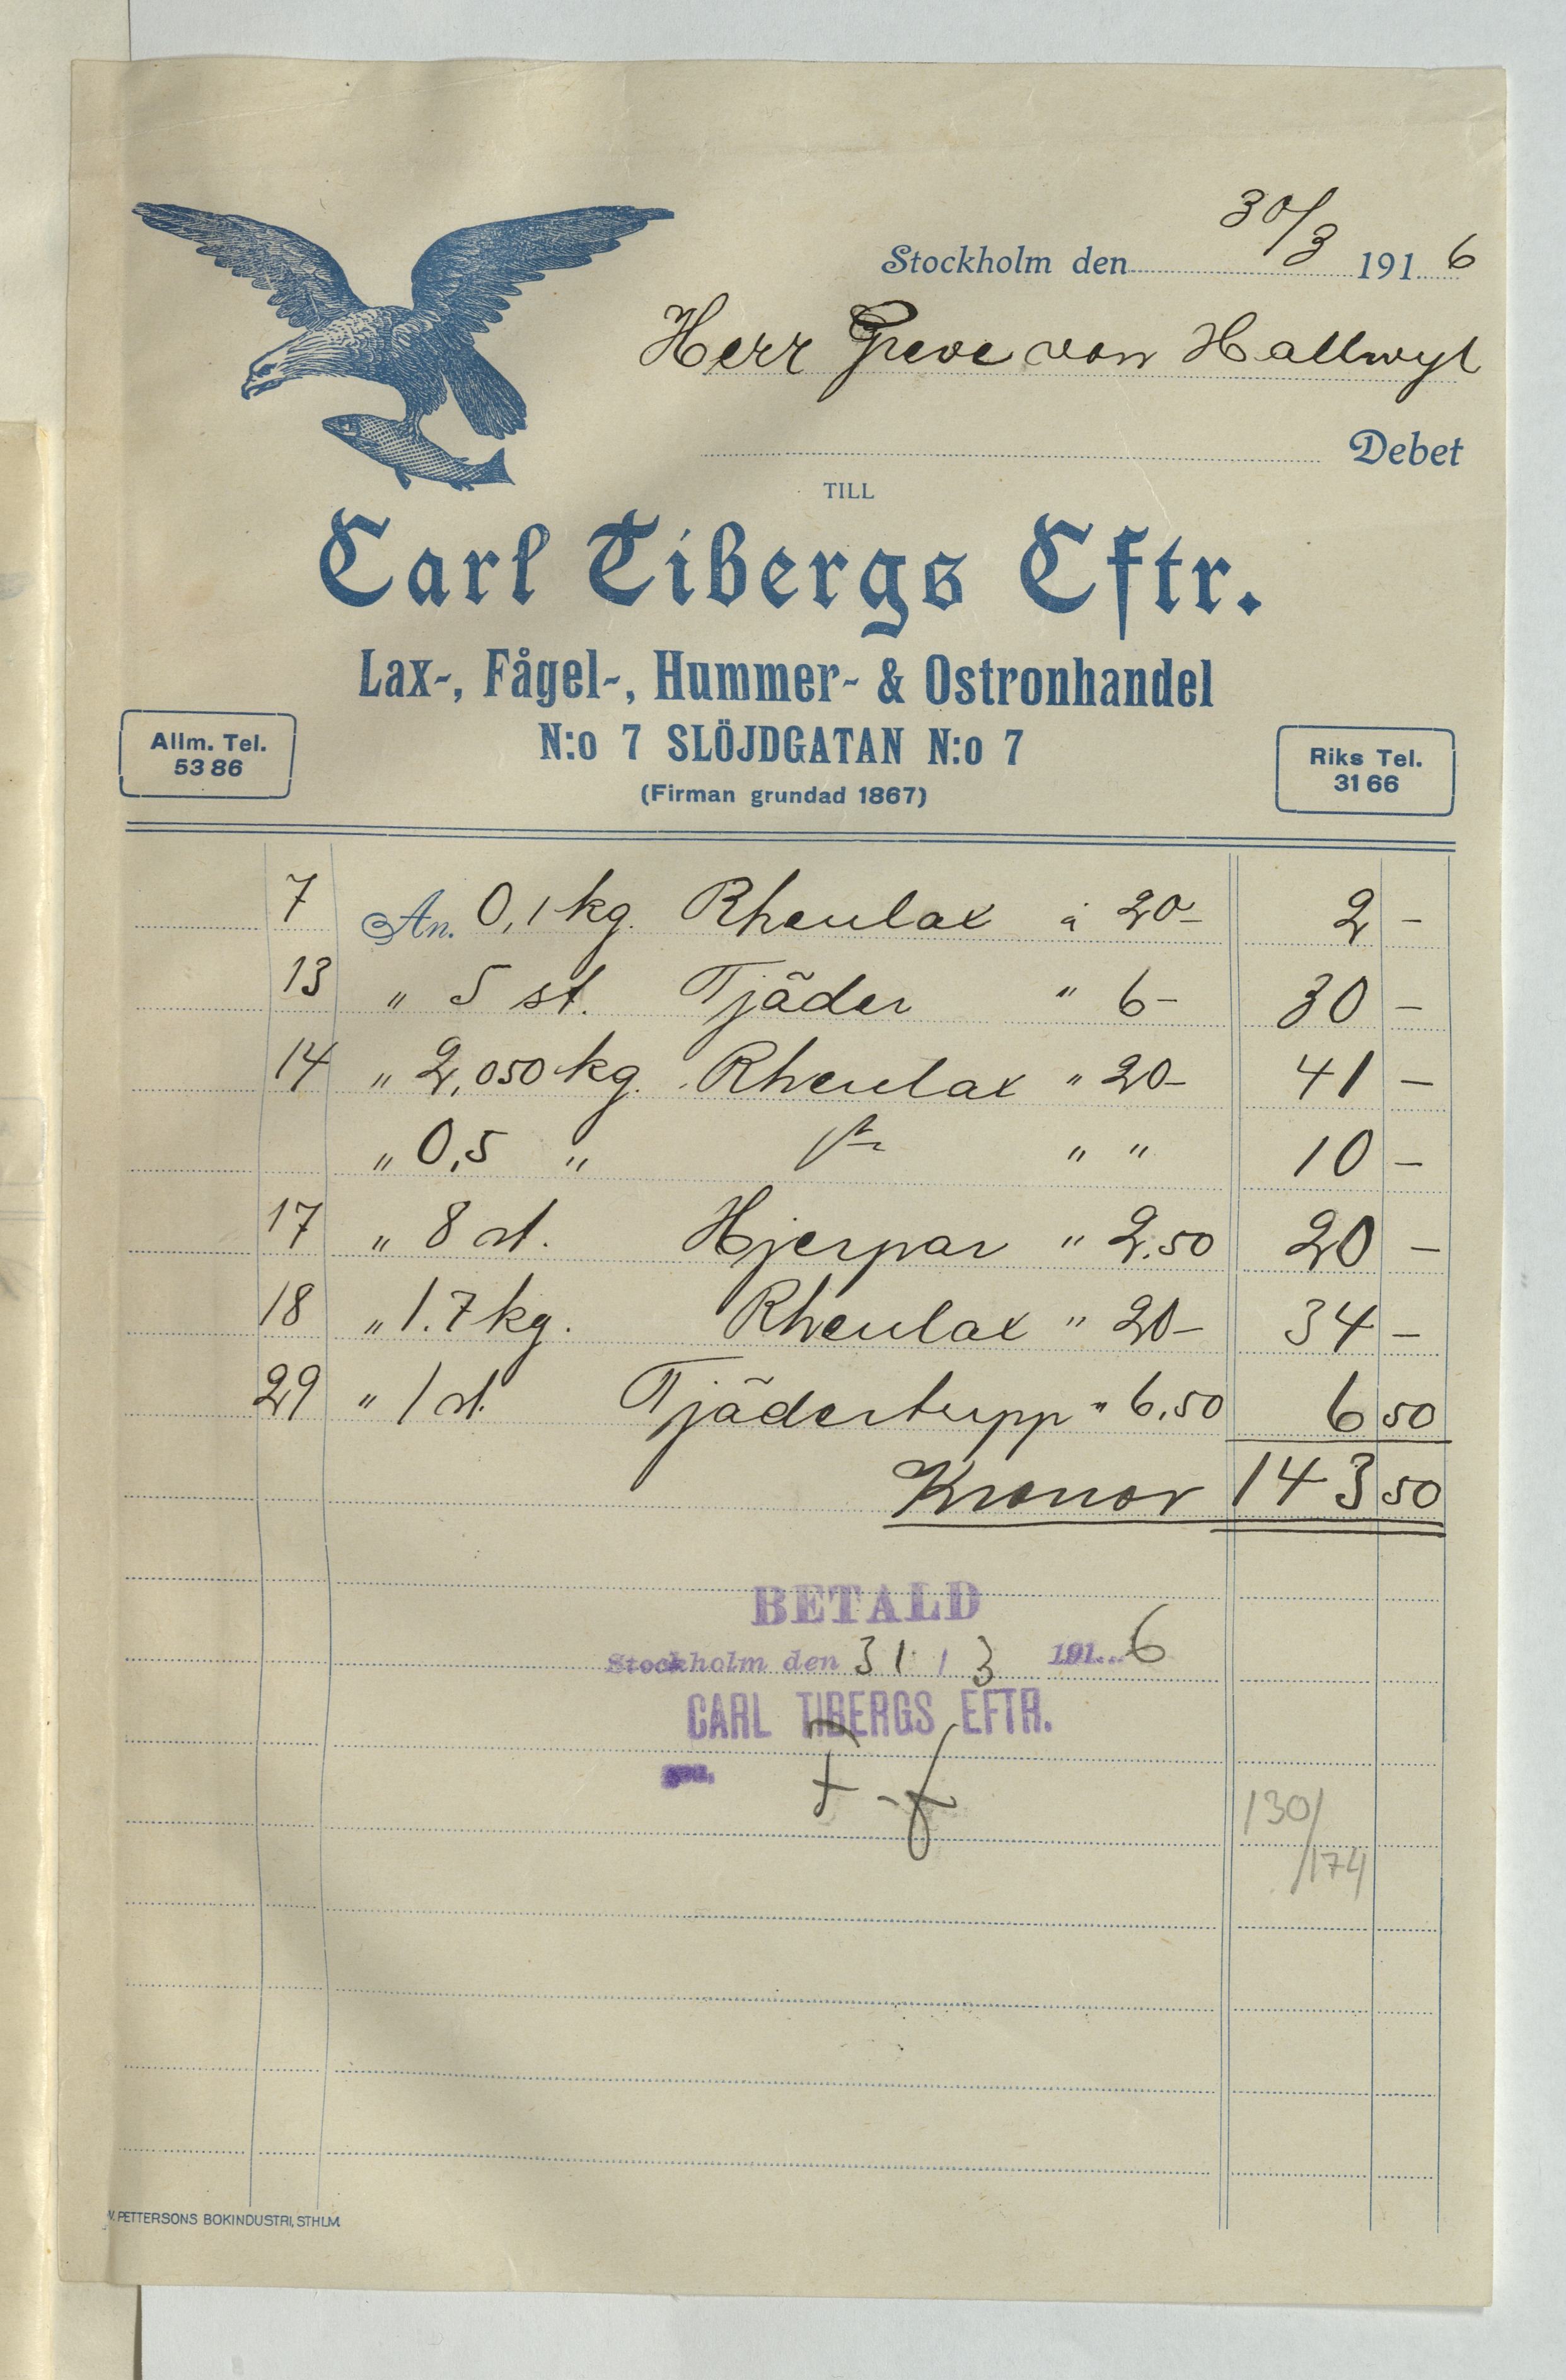 Stockholm den 30/3 1916
Herr Greve von Hallwyl
Debet
TILL
Carl Tibergs Eftr.
Lax-, Fågel-, Hummer- & Ostronhandel
N:o 7 SLÖJDGATAN N:o 7
(Firman grundad 1867)
Allm. Tel.
53 86
Riks Tel.
31 66
7 An. 0,1 kg. Rhenlax à 20- 2 -
13 " 5 st. Tjäder " 6- 30 -
14 " 2,050 kg. Rhenlax " 20- 41 -
" 0,5 " " " 10 -
17 " 8 st. Hjerpar " 2.50 20 -
18 " 1.7 kg. Rhenlax " 20- 34 -
29 " 1 st. Tjädertupp " 6,50 6 50
Kronor 143 50
BETALD
Stockholm den 31 / 3 1916
CARL TIBERGS EFTR.
130/
/174
PETTERSONS BOKINDUSTRI, STHLM.